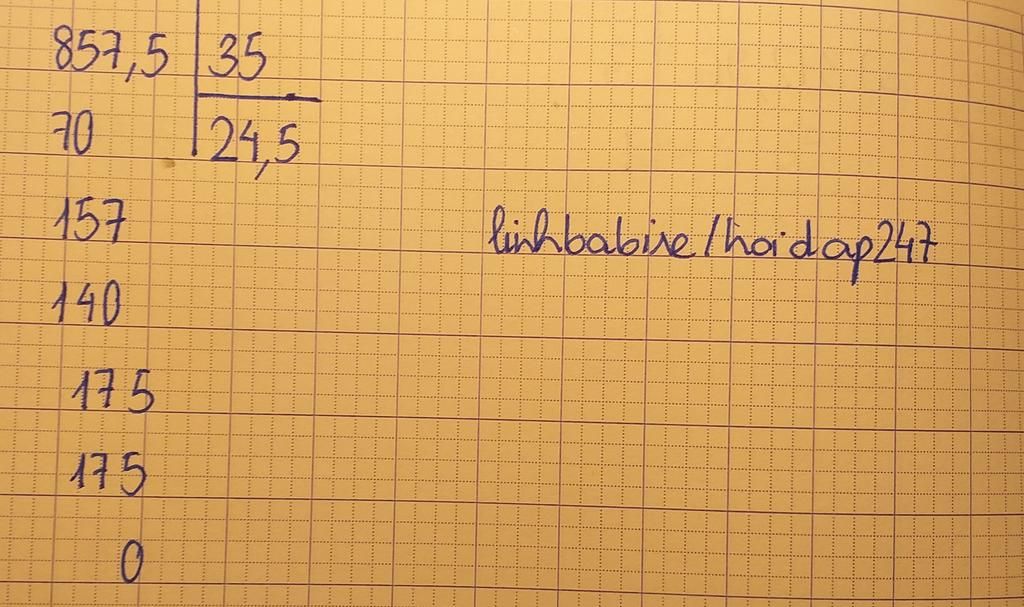 857,5 35
70 24,5
157
linhbabise/hoidap247
140
175
175
0